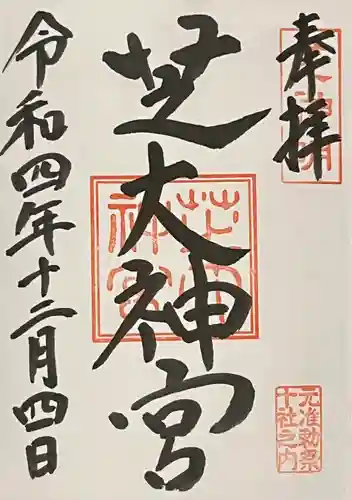 奉拝
芝大神宮
令和四年十二月四日
元准勅祭
十社之内